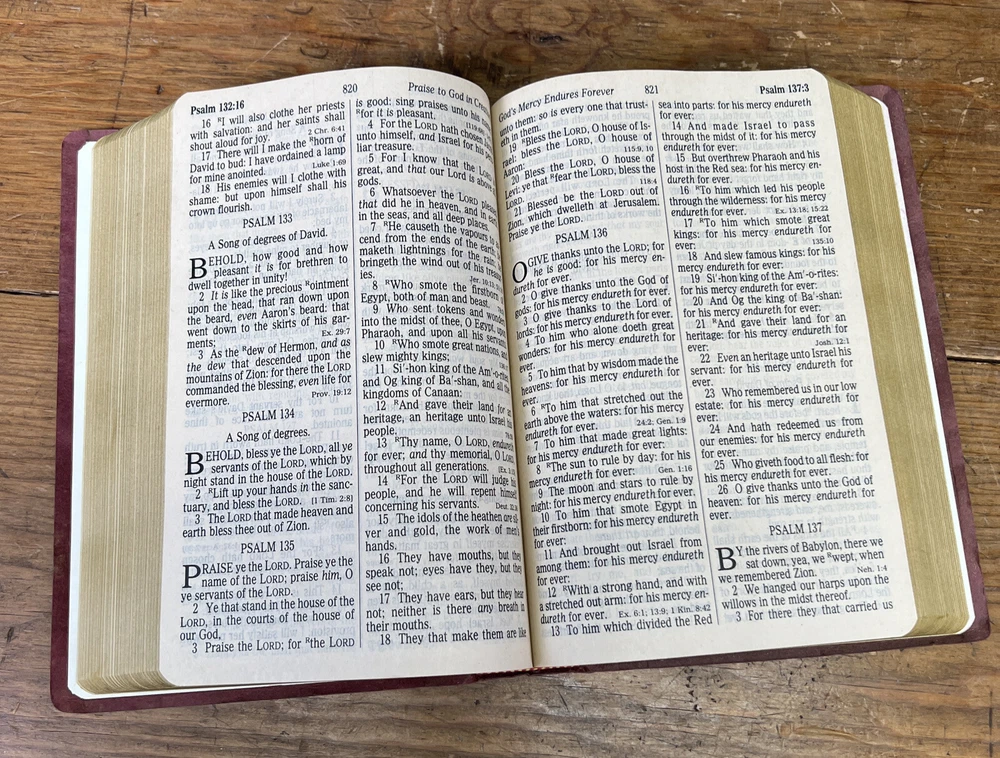 Psalm 132:16
820
Praise to God in
16 ᴿI will also clothe her priests
with salvation: and her saints shall
shout aloud for joy. 2 Chr. 6:41
17 There will I make the ᴿhorn of
David to bud: I have ordained a lamp
for mine anointed. Luke 1:69
18 His enemies will I clothe with
shame: but upon himself shall his
crown flourish.
PSALM 133
A Song of degrees of David.
BEHOLD, how good and how
pleasant it is for brethren to
dwell together in unity!
2 It is like the precious ᴿointment
upon the head, that ran down upon
the beard, even Aaron's beard: that
went down to the skirts of his gar-
ments; Ex. 29:7
3 As the ᴿdew of Hermon, and as
the dew that descended upon the
mountains of Zion: for there the LORD
commanded the blessing, even life for
evermore. Prov. 19:12
PSALM 134
A Song of degrees.
BEHOLD, bless ye the LORD, all ye
servants of the LORD, which by
night stand in the house of the LORD.
2 ᴿLift up your hands in the sanc-
tuary, and bless the LORD. [1 Tim. 2:8]
3 The LORD that made heaven and
earth bless thee out of Zion.
PSALM 135
PRAISE ye the LORD. Praise ye the
name of the LORD; praise him, O
ye servants of the LORD.
2 Ye that stand in the house of the
LORD, in the courts of the house of
our God,
3 Praise the LORD; for ᴿthe LORD
is good: sing praises unto his
ᴿfor it is pleasant.
4 For the LORD hath chosen
unto himself, and Israel for his
liar treasure.
5 For I know that the LORD
great, and that our Lord is above
gods.
6 Whatsoever the LORD
that did he in heaven, and in
in the seas, and all deep places.
7 ᴿHe causeth the vapours to
cend from the ends of the earth;
maketh lightnings for the rain;
bringeth the wind out of his
ies. Jer. 10:13
8 ᴿWho smote the firstborn
Egypt, both of man and beast.
9 Who sent tokens and wonders
into the midst of thee, O Egypt, upon
Pharaoh, and upon all his servants.
10 ᴿWho smote great nations, and
slew mighty kings;
11 Si'-hon king of the Am'-o-rites,
and Og king of Ba'-shan, and all the
kingdoms of Canaan:
12 ᴿAnd gave their land for an
heritage, an heritage unto Israel his
people.
13 ᴿThy name, O LORD, endureth
for ever; and thy memorial, O LORD,
throughout all generations. [Ex. 3:15]
14 ᴿFor the LORD will judge his
people, and he will repent himself
concerning his servants. Deut. 32:36
15 The idols of the heathen are sil-
ver and gold, the work of men's
hands.
16 They have mouths, but they
speak not; eyes have they, but they
see not;
17 They have ears, but they hear
not; neither is there any breath in
their mouths.
18 They that make them are like
God's Mercy Endures Forever
821
Psalm 137:3
unto them: so is every one that trust-
eth in them.
19 ᴿBless the LORD, O house of Is-
rael: bless the LORD, O house of
Aaron: 115:9, 10
20 Bless the LORD, O house of
Levi: ye that ᴿfear the LORD, bless the
LORD. 118:4
21 Blessed be the LORD out of
Zion, which dwelleth at Jerusalem.
Praise ye the LORD.
PSALM 136
O GIVE thanks unto the LORD; for
he is good: for his mercy en-
dureth for ever.
2 O give thanks unto the God of
gods: for his mercy endureth for ever.
3 O give thanks to the Lord of
lords: for his mercy endureth for ever.
4 To him who alone doeth great
wonders: for his mercy endureth for
ever.
5 To him that by wisdom made the
heavens: for his mercy endureth for
ever.
6 ᴿTo him that stretched out the
earth above the waters: for his mercy
endureth for ever. 24:2; Gen. 1:9
7 To him that made great lights:
for his mercy endureth for ever:
8 ᴿThe sun to rule by day: for his
mercy endureth for ever: Gen. 1:16
9 The moon and stars to rule by
night: for his mercy endureth for ever.
10 To him that smote Egypt in
their firstborn: for his mercy endureth
for ever:
11 And brought out Israel from
among them: for his mercy endureth
for ever:
12 ᴿWith a strong hand, and with
a stretched out arm: for his mercy en-
dureth for ever. Ex. 6:1; 13:9; 1 Kin. 8:42
13 To him which divided the Red
sea into parts: for his mercy endureth
for ever:
14 And made Israel to pass
through the midst of it: for his mercy
endureth for ever:
15 But overthrew Pharaoh and his
host in the Red sea: for his mercy en-
dureth for ever.
16 ᴿTo him which led his people
through the wilderness: for his mercy
endureth for ever. Ex. 13:18; 15:22
17 ᴿTo him which smote great
kings: for his mercy endureth for
ever: 135:10
18 And slew famous kings: for his
mercy endureth for ever:
19 Si'-hon king of the Am'-o-rites:
for his mercy endureth for ever:
20 And Og the king of Ba'-shan:
for his mercy endureth for ever:
21 ᴿAnd gave their land for an
heritage: for his mercy endureth for
ever: Josh. 12:1
22 Even an heritage unto Israel his
servant: for his mercy endureth for
ever.
23 Who remembered us in our low
estate: for his mercy endureth for
ever:
24 And hath redeemed us from
our enemies: for his mercy endureth
for ever.
25 Who giveth food to all flesh: for
his mercy endureth for ever.
26 O give thanks unto the God of
heaven: for his mercy endureth for
ever.
PSALM 137
BY the rivers of Babylon, there we
sat down, yea, we ᴿwept, when
we remembered Zion. Neh. 1:4
2 We hanged our harps upon the
willows in the midst thereof.
3 For there they that carried us